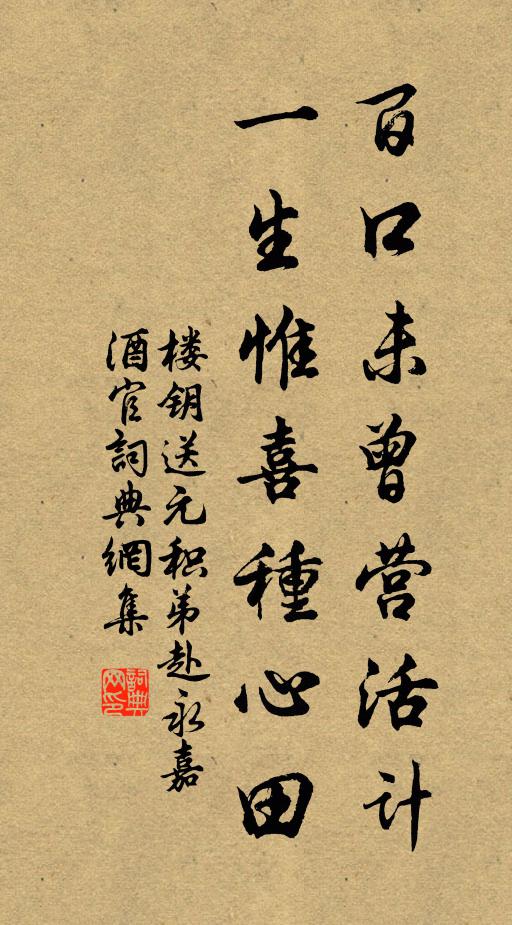 百口未曾营活计
一生惟喜種心田
楼钥送元积弟赴永嘉
酒官詞典網集
詞典网印